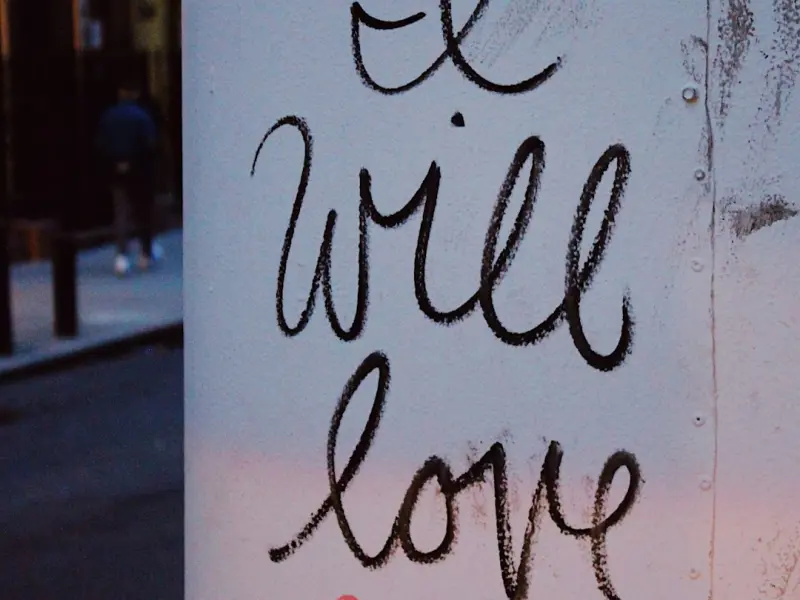 will
love